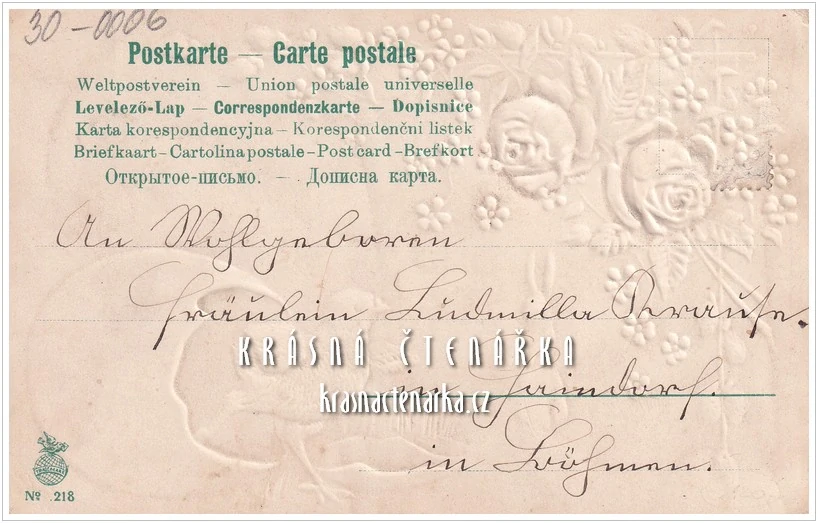 30-0006
Postkarte — Carte postale
Weltpostverein — Union postale universelle
Levelező-Lap — Correspondenzkarte — Dopisnice
Karta korespondencyjna — Korespondenčni listek
Briefkaart — Cartolina postale — Post card — Brefkort
Открытое-письмо. — Дописна карта.
An Wohlgeboren
Fräulein Ludmilla Krause.
KRÁSNÁ ČTENÁŘKA
in Haindorf.
krasnactenarka.cz
in Böhmen.
Nº 218